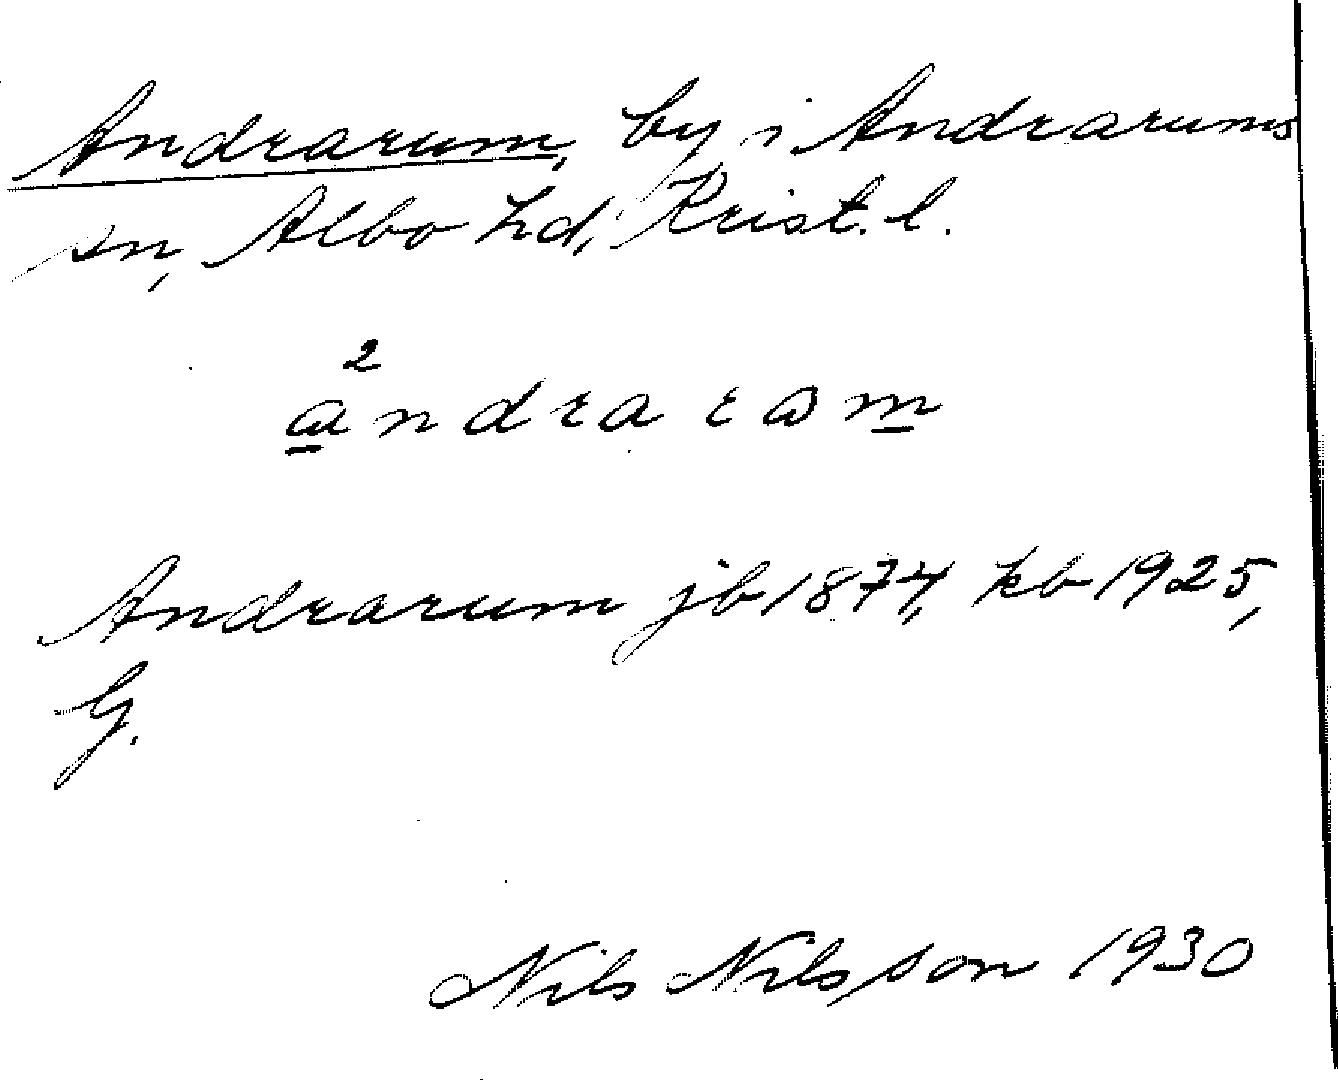 Andrarum, by i Andrarums
sn, Albo hd, Krist. l.
Andrarum jb 1874, kb 1925,
G.
Nils Nilsson 1930